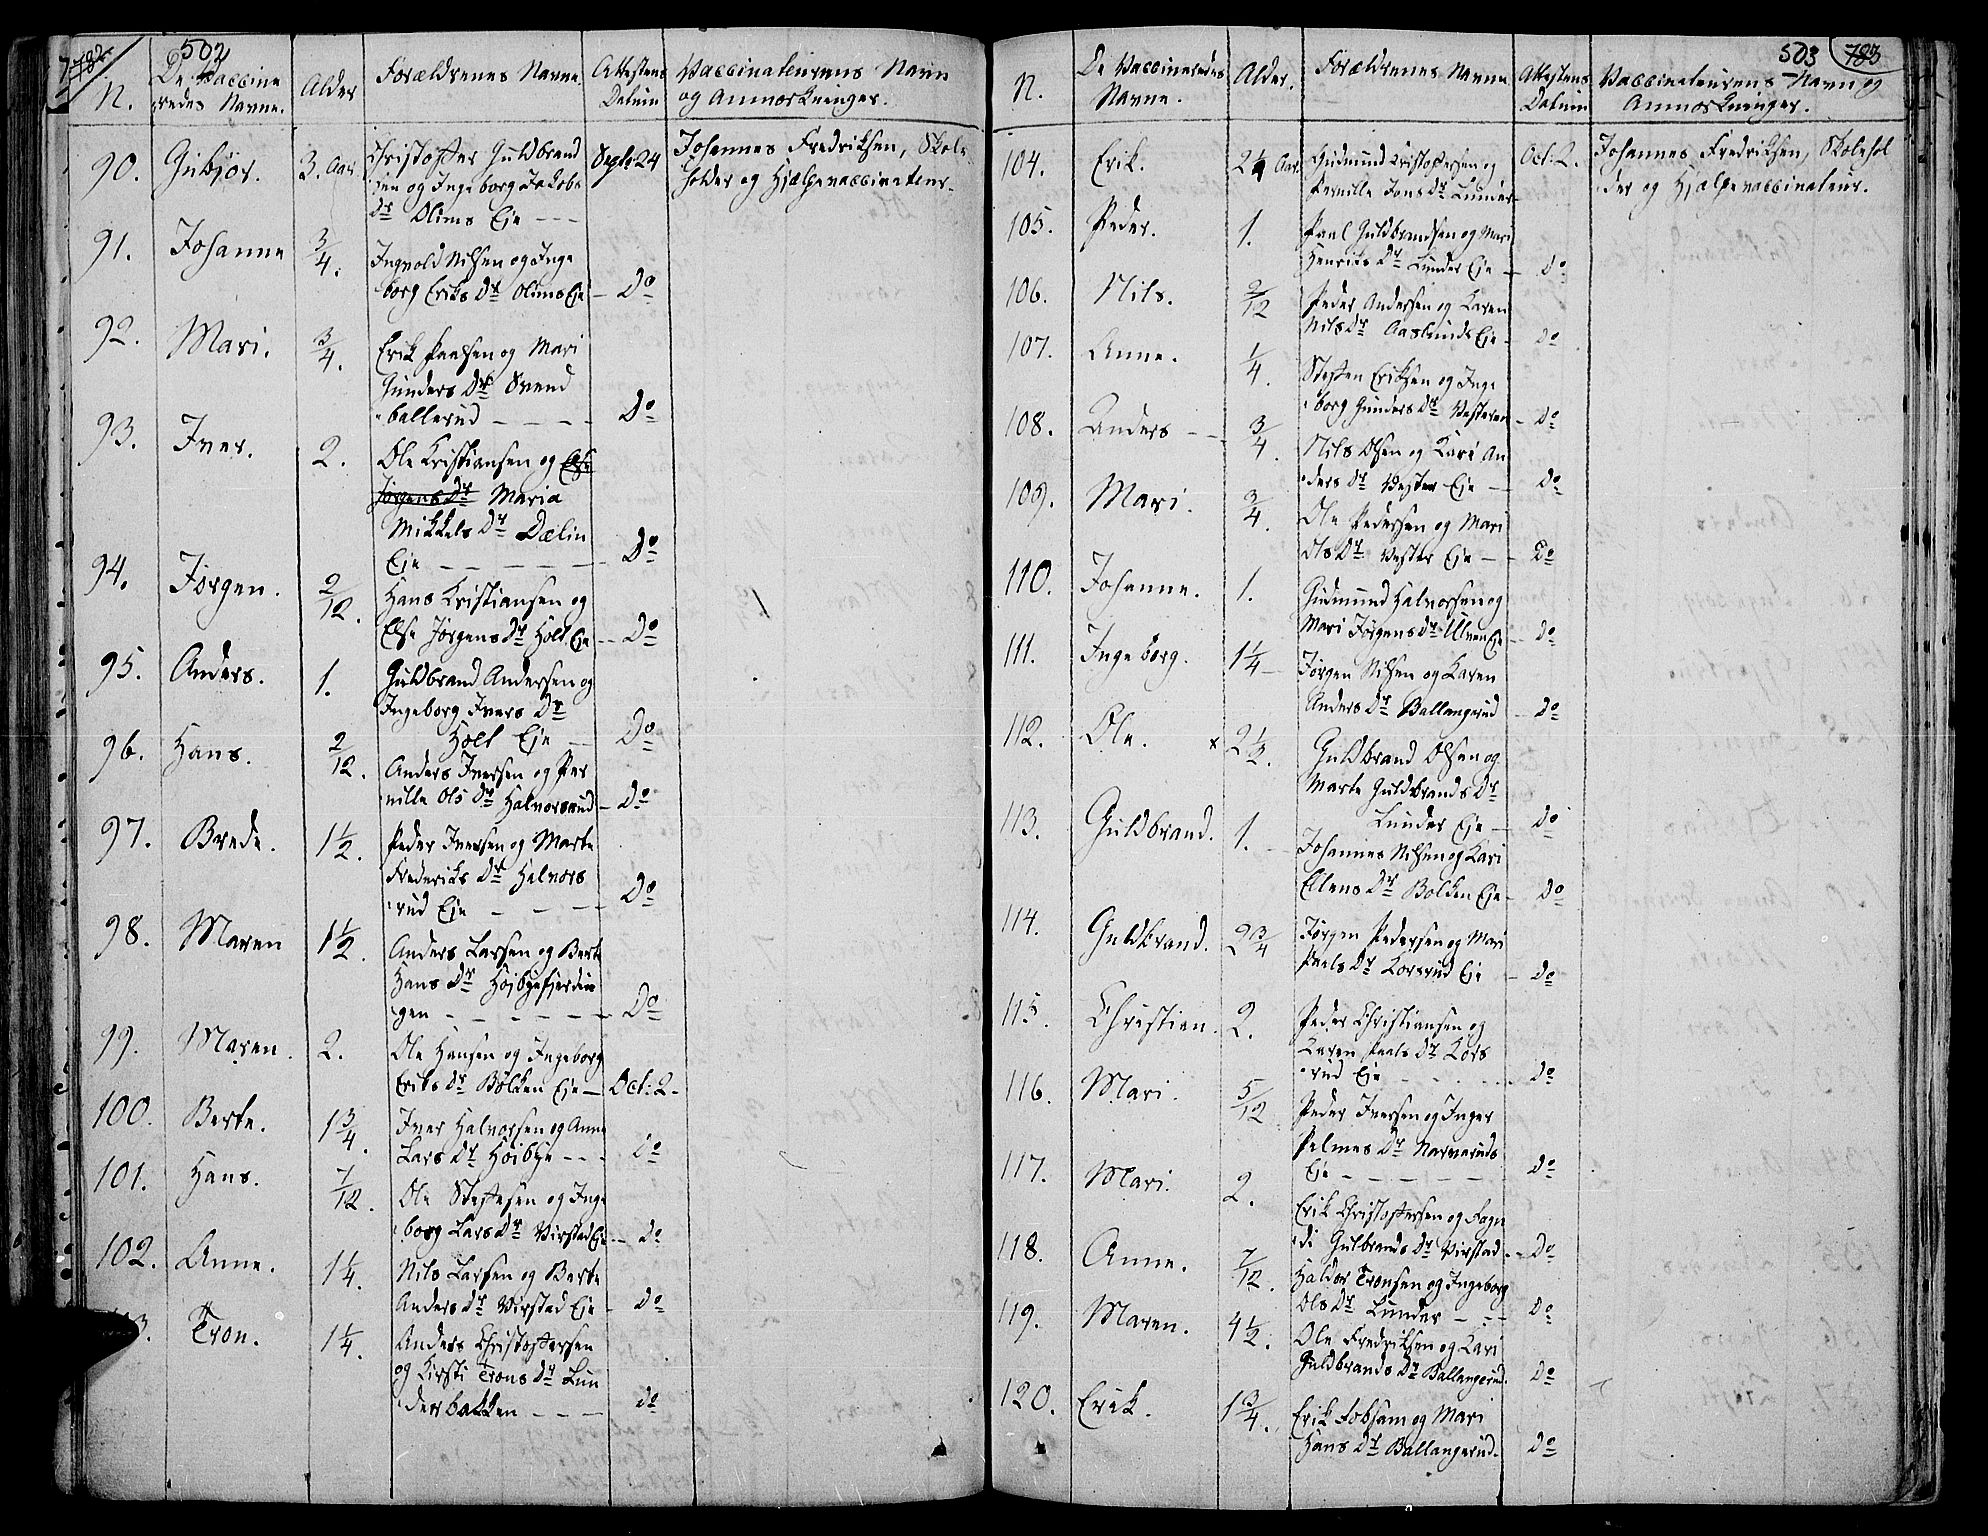 782
502
N.
De Vaccine
redes Navne.
Alder
Forældrenes Navne.
Attestens
Datum
Vaccinateurens Navn
og Anmærkninger.
90. Gubjør. 3. Aar. Christoffer Guldbrand Sept: 24 Johannes Fredriksen, Skole
sen og Ingeborg Jakobs holder og Hjælpevaccinateur.
Dr Olims Eje
91. Johanne 3/4. Ingvold Nilsen og Inge
borg Eriks Dr Olims Eje Do
92. Mari. 3/4. Erik Paalsen og Mari
Gunders Dr Svend
ballerud Do
93. Iver. 2. Ole Kristiansen og Else
Jørgens Dr Maria
Mikkels Dr Dælin
Eje Do
94. Jørgen. 2/12. Hans Kristiansen og
Else Jørgens Dr Holt Eje Do
95. Anders. 1. Guldbrand Andersen og
Ingeborg Ivers Dr
Holt Eje Do
96. Hans. 2/12. Anders Iversen og Per
nille Ols Dr Halvorsrud Do
97. Brede. 1 1/2. Peder Iversen og Marte
Frederiks Dr Halvors
rud Eje Do
98. Maren 1 1/2. Anders Larsen og Berte
Hans Dr Høibyefjerdin
gen Do
99. Maren. 2. Ole Hansen og Ingeborg
Eriks Dr Bølken Eje Oct: 2
100. Berte. 1 3/4. Iver Halvorsen og Anne
Lars Dr Høibye do
101. Hans. 7/12. Ole Steffesen og Inge
borg Lars Dr Virstad Eje do
102. Anne. 1 1/4. Nils Larsen og Berte
Anders Dr Virstad Eje do
3. Tron. 1 1/4. Anders Christoffersen
og Kirsti Trons Dr Lun
derbakken do
503
783
N.
De Vaccineredes
Navne.
Alder.
Forældrenes Navne
Attestens
Datum
Vaccinateurens Navn og
Anmærkninger.
104. Erik. 2 Aar. Gudmund Kristoffersen og Oct: 2. Johannes Fredriksen, Skolehol
Pernille Jons Dr Lunder der og Hjælpevaccinateur.
105. Peder. 1. Paal Guldbrandsen og Mari
Henriks Dr Lunder Eje Do
106. Nils. 2/12 Peder Andersen og Karen
Nils Dr Aaslunds Eje do
107. Anne. 1/4. Steffen Eriksen og Inge
borg Gunders Dr Vesteren Do
108. Anders 3/4. Nils Olsen og Kari An
ders Dr Vester Eje Do
109. Mari. 3/4. Ole Pedersen og Mari
Ols Dr Vester Eje Do
110. Johanne. 1. Gudmund Halvorsen og
Mari Jørgens Dr Ulven Eje do
111. Ingeborg. 1 1/4 Jørgen Nilsen og Karen
Anders Dr Ballangerud do
112. Ole. x 2 1/2 Guldbrand Olsen og
Marte Guldbrands Dr
Lunder Eje do
113. Guldbrand. 1. Johannes Nilsen og Kari
Ellens Dr Bolken Eje Do
114. Guldbrand. 2 3/4 Jørgen Pedersen og Mari
Paals Dr Korsrud Eje do
115. Christian. 2. Peder Christiansen og
Karen Paals Dr Kors
rud Eje do
116. Mari. 5/12 Peder Iversen og Inger
Palmes Dr Narveruds
Eje Do
117. Mari. 2. Erik Christoffersen og Fogn
di Gulbrands Dr Virstad Do
118. Anne. 7/12. Haldor Tronsen og Ingeborg
Ols Dr Lunder Do
119. Maren. 4 1/2. Ole Fredriksen og Kari
Guldbrands Dr Ballangerud Do
120. Erik. 1 3/4. Erik Fobsam og Mari
Hans Dr Ballangerud Do